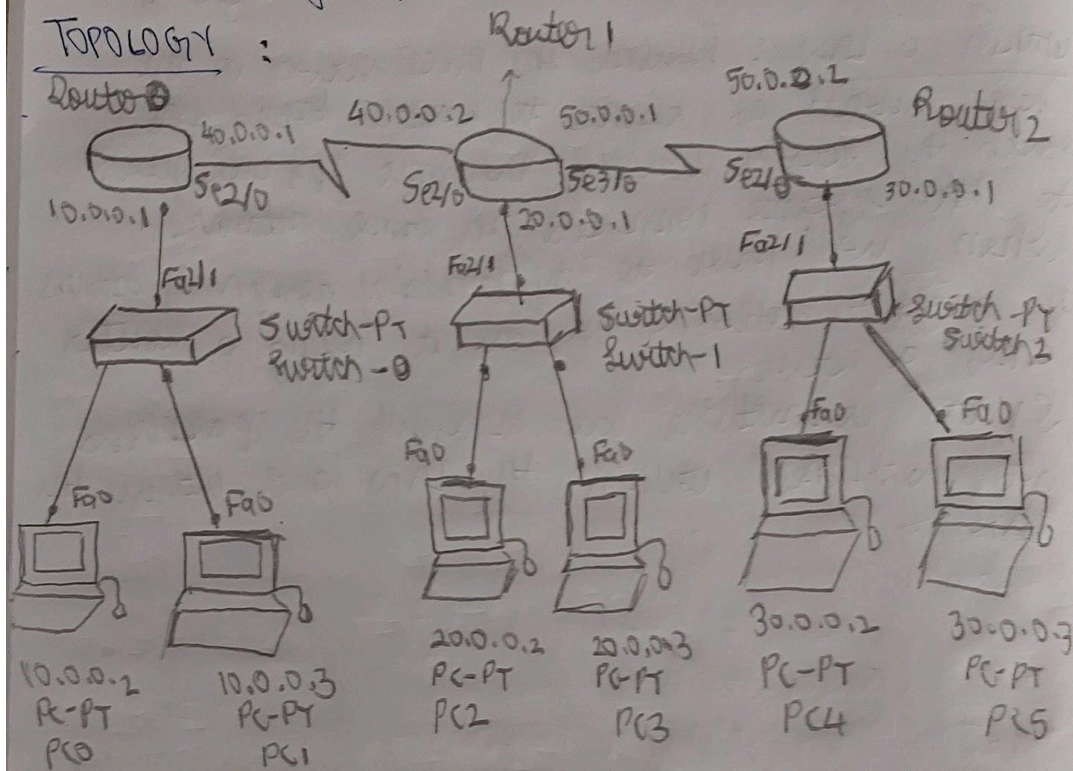 TOPOLOGY :
Router 1
Router 0
40.0.0.1
40.0.0.2
50.0.0.1
50.0.0.2
Router 2
10.0.0.1
Se2/0
Se2/0
Se3/0
Se2/0
30.0.0.1
20.0.0.1
Fa2/1
Fa2/1
Fa2/1
Switch-PT
Switch-0
Switch-PT
Switch-1
Switch-PT
Switch 2
Fa0
Fa0
Fa0
Fa0
Fa0
Fa0
10.0.0.2
PC-PT
PC0
10.0.0.3
PC-PT
PC1
20.0.0.2
PC-PT
PC2
20.0.0.3
PC-PT
PC3
30.0.0.2
PC-PT
PC4
30.0.0.3
PC-PT
PC5